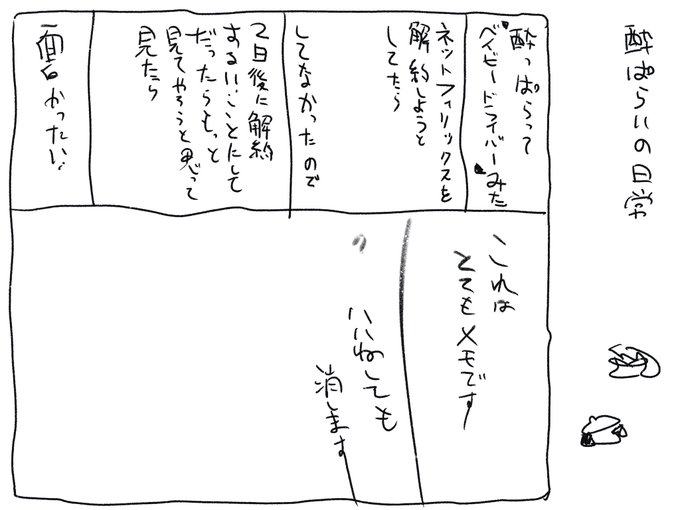 酔ぱらいの日常
酔っぱらって
ベイビードライバーみた
ネットフィリックスを
解約しようと
してたら
してなかったので
2日後に解約
することにして
だったらもっと
見てやろうと思って
見たら
面白かったい
これは
とてもメモです
いいねしても
消します